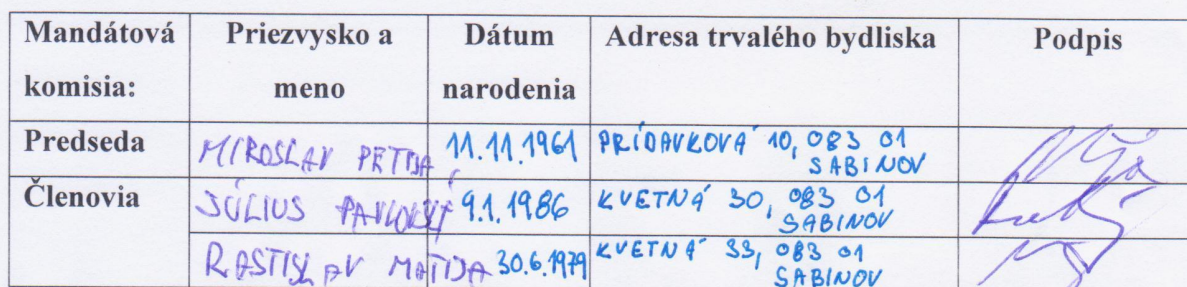 Mandátová komisia: Priezvysko a meno Dátum narodenia Adresa trvalého bydliska Podpis
Predseda MIROSLAV PETIJA 11.11.1961 PRÍDAVKOVÁ 10, 083 01
SABINOV
Členovia JÚLIUS PAVLOVSKÝ 9.1.1986 KVETNÁ 30, 083 01
SABINOV
RASTISLAV MATIJA 30.6.1979 KVETNÁ 33, 083 01
SABINOV